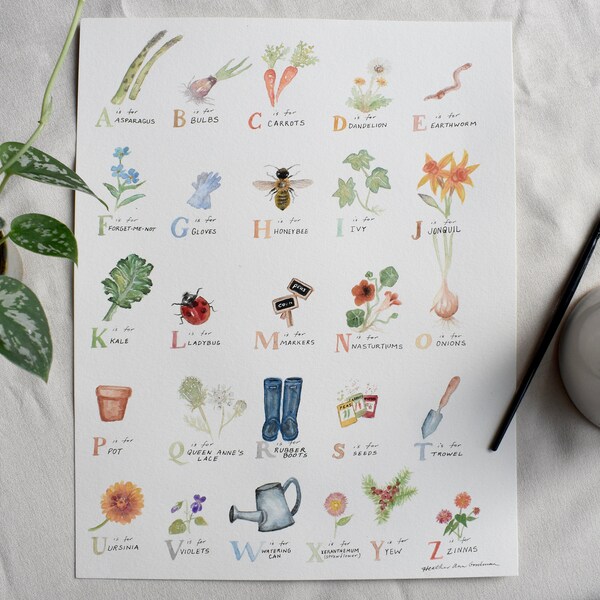 A is for
ASPARAGUS
B is for
BULBS
C is for
CARROTS
D is for
DANDELION
E is for
EARTHWORM
F is for
FORGET-ME-NOT
G is for
GLOVES
H is for
HONEYBEE
I is for
IVY
J is for
JONQUIL
K is for
KALE
L is for
LADYBUG
peas
corn
M is for
MARKERS
N is for
NASTURTIUMS
O is for
ONIONS
P is for
POT
Q is for
QUEEN ANNE'S
LACE
R is for
RUBBER
BOOTS
PEAS
S is for
SEEDS
T is for
TROWEL
U is for
URSINIA
V is for
VIOLETS
W is for
WATERING
CAN
X is for
XERANTHEMUM
(STRAWFLOWER)
Y is for
YEW
Z is for
ZINNAS
Heather Ann